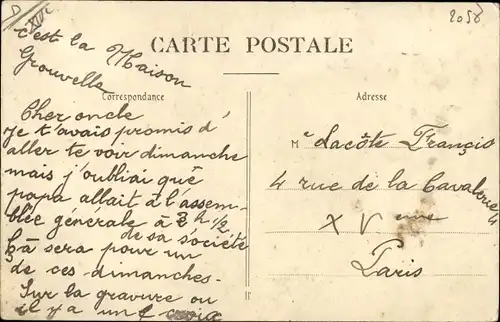 2058
XIVe
CARTE POSTALE
Correspondance
Adresse
Cher oncle
Je t'avais promis d'
aller te voir dimanche
mais j'oubliai que
papa allait à l'assem-
blée générale à 3 h 1/2
de sa société
çà sera pour un
de ces dimanches.
Sur la gravure ou
il y a un t croix
c'est la Maison
Grouvelle
M
r
Lacôte François
4 rue de la Cavalerie 4
XV eme
Paris